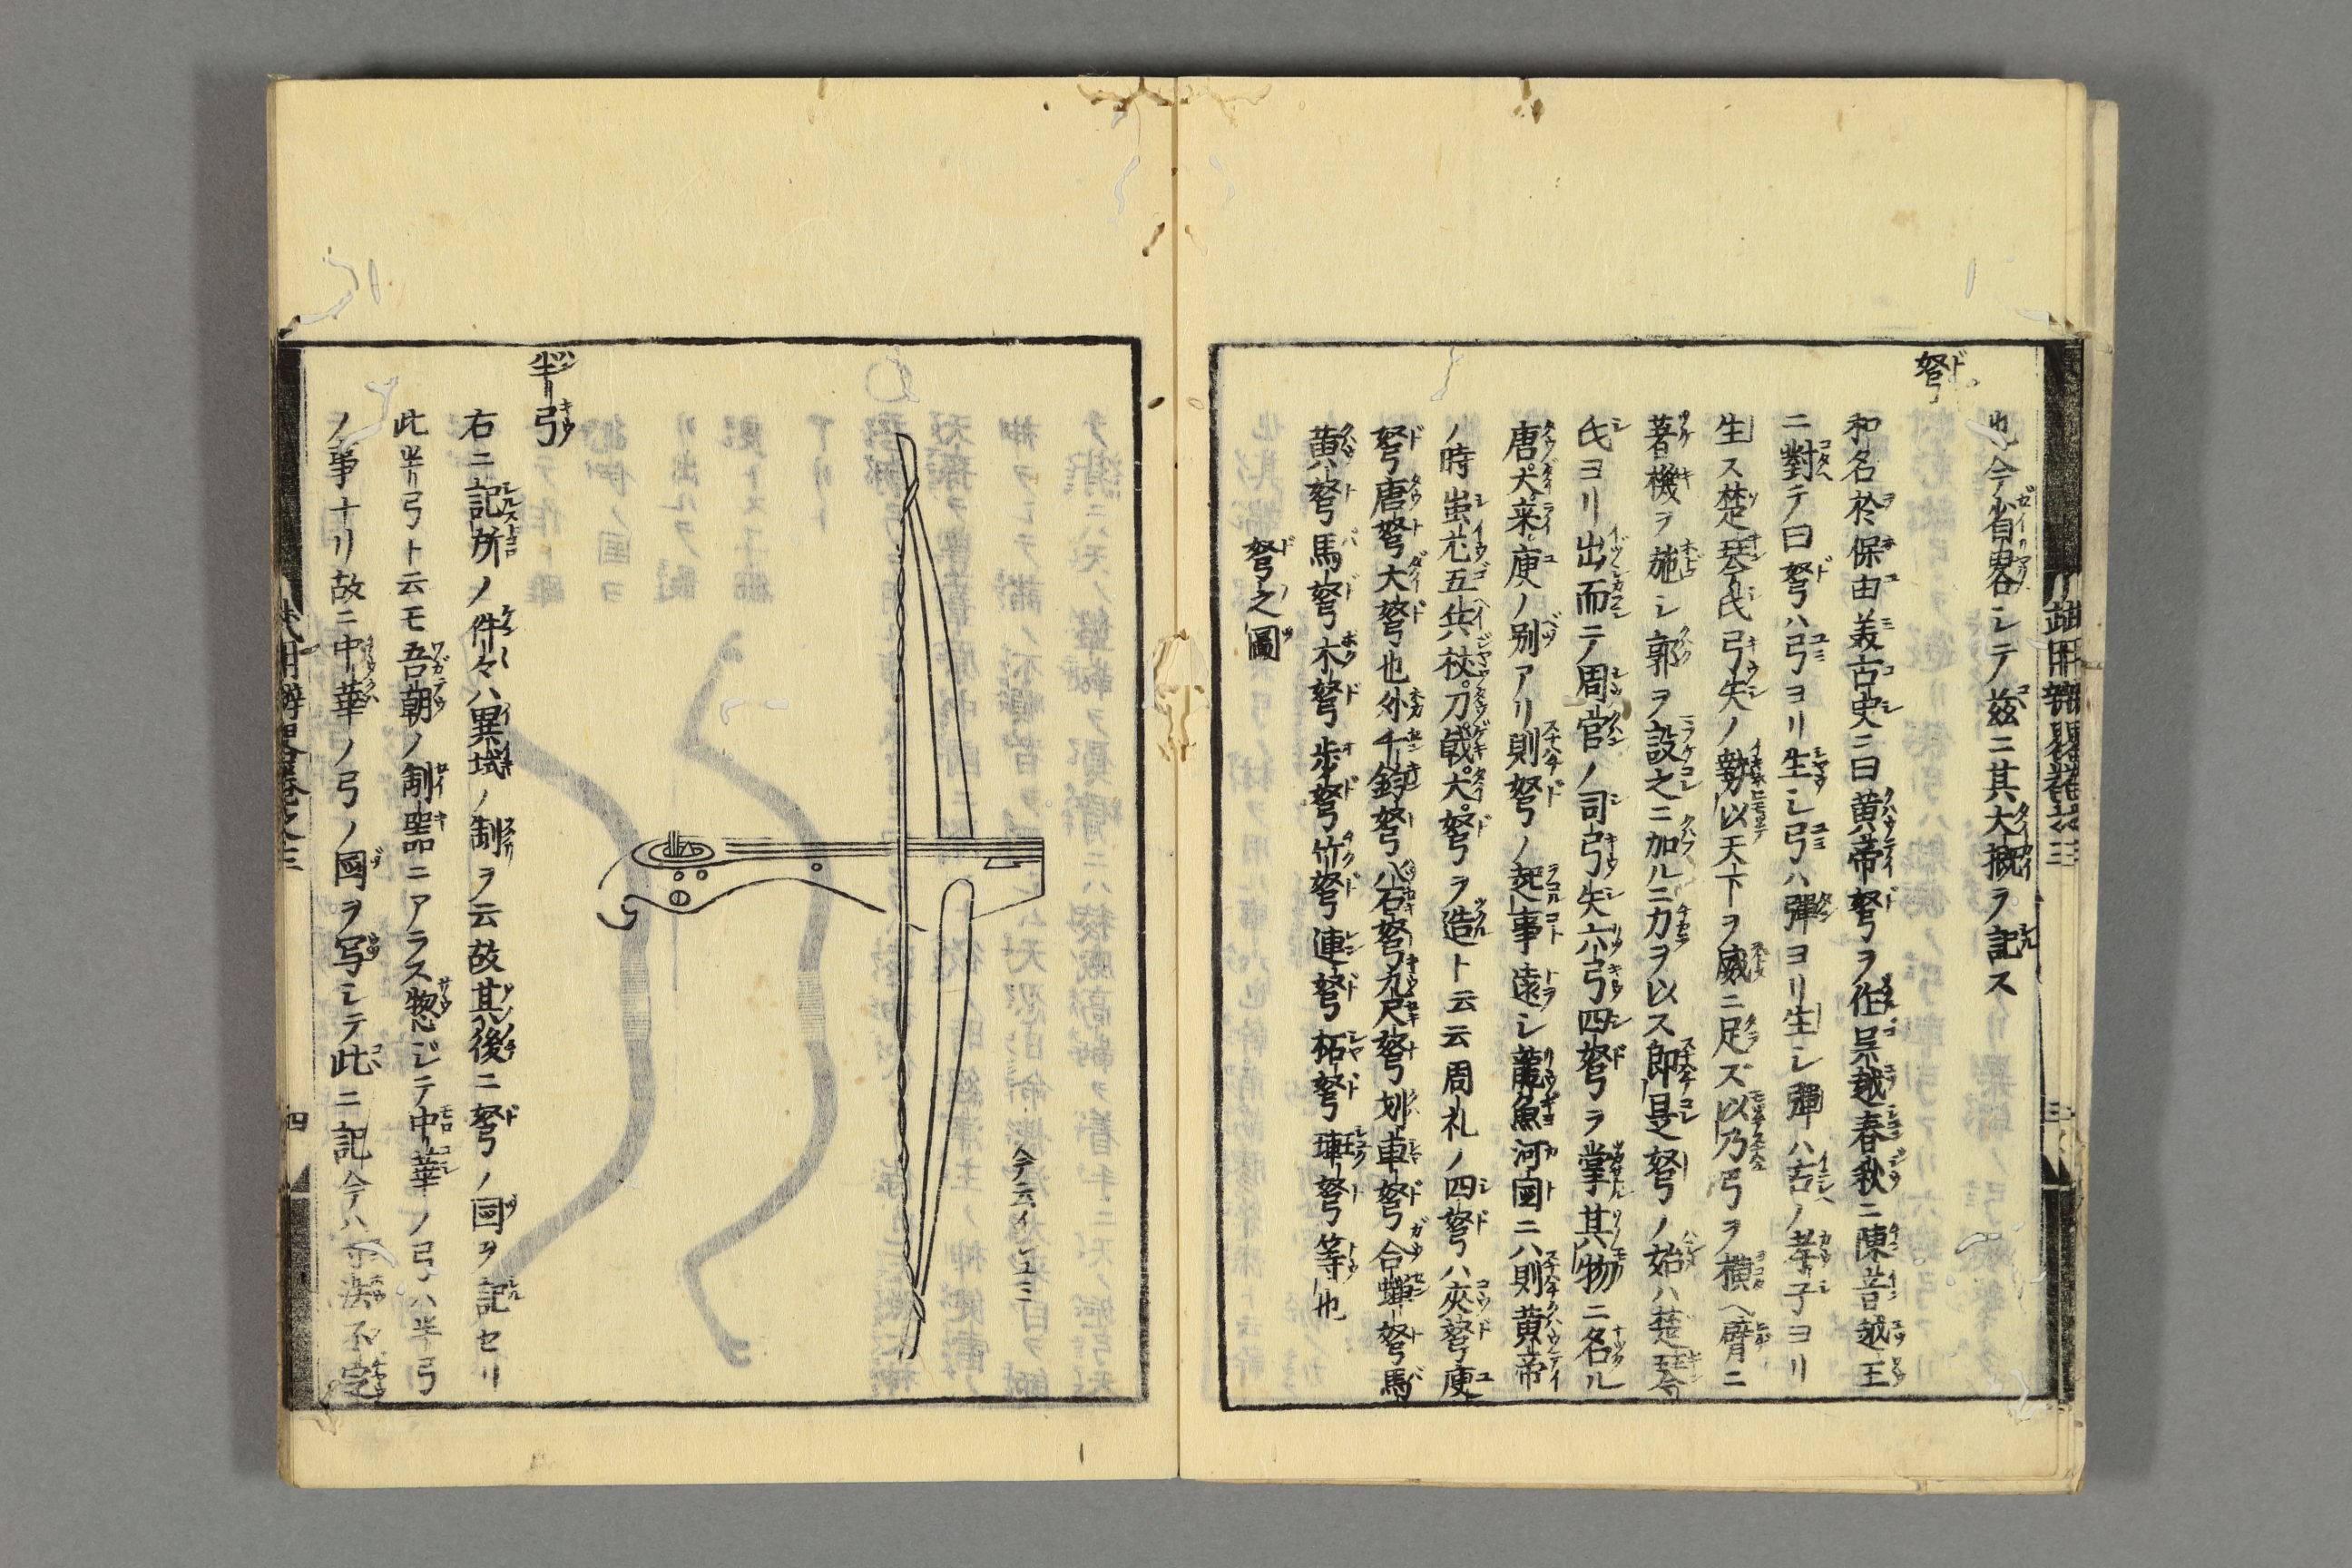 也今省畧シテ茲ニ其大概ヲ記ス
弩
和名於保由美古史ニ曰黄帝弩ヲ作呉越春秋ニ陳音越王
ニ對テ曰弩ハ弓ヨリ生シ弓ハ彈ヨリ生シ彈ハ古ノ孝子ヨリ
生ス楚琴氏弓矢ノ勢以天下ヲ威ニ足ズ以乃弓ヲ横ヘ臂ニ
著機ヲ施シ郭ヲ設之ニ加ルニ力ヲ以ス即是弩ノ始ハ楚琴
氏ヨリ出而ニテ周官ノ司弓矢六弓四弩ヲ掌其物ニ名ル
唐大来庾ノ別アリ則弩ノ起事遠シ龍魚河圖ニハ則黄帝
ノ時蚩尤五兵杖刀戟大弩ヲ造ト云云周礼ノ四弩ハ夾弩庾
弩唐弩大弩也外千鈞弩八石弩九尺弩刬車弩合蟬弩馬
黄弩馬弩木弩歩弩竹弩連弩柘弩弩等也
弩之圖
今云イシユミ
半弓
右ニ記所ノ件々ハ異域ノ制ヲ云故其後ニ弩ノ図ヲ記セリ
此半弓ト云モ吾朝ノ制器ニアラス惣ジテ中華ノ弓ハ半弓
ノ事ナリ故ニ中華ノ弓ノ図ヲ写シテ此ニ記今ハ
武用辨畧巻之三
四